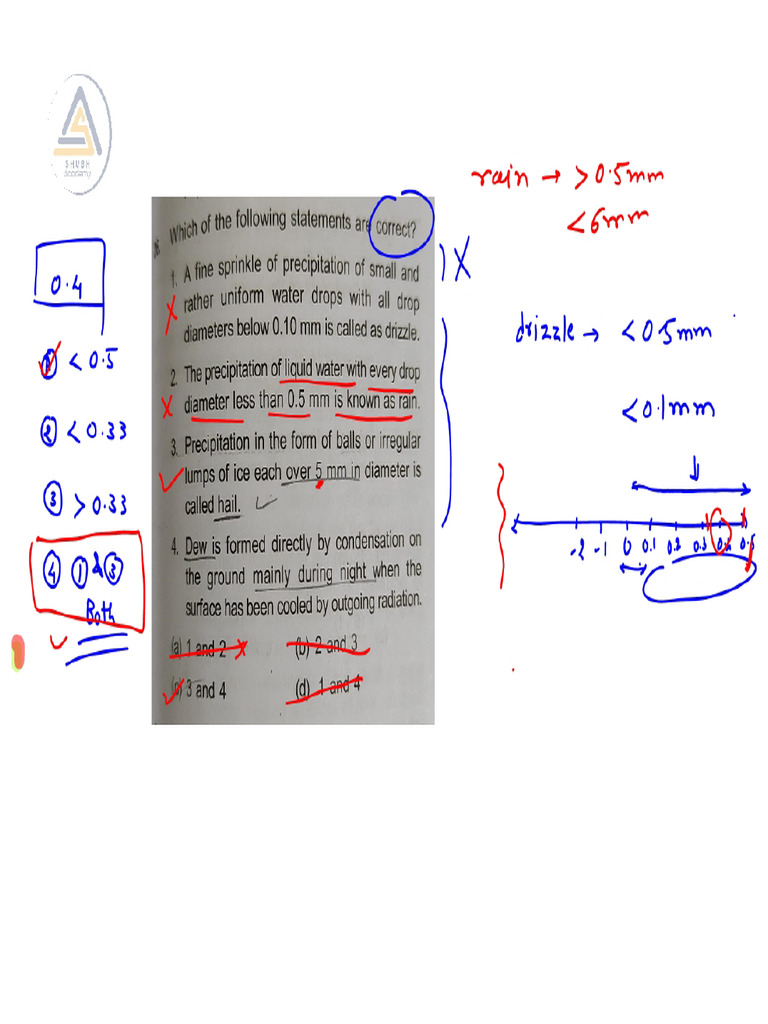 SHUBH
Academy
rain → > 0.5mm
< 6mm
Which of the following statements are correct?
1. A fine sprinkle of precipitation of small and
rather uniform water drops with all drop
diameters below 0.10 mm is called as drizzle.
2. The precipitation of liquid water with every drop
diameter less than 0.5 mm is known as rain.
3. Precipitation in the form of balls or irregular
lumps of ice each over 5 mm in diameter is
called hail.
4. Dew is formed directly by condensation on
the ground mainly during night when the
surface has been cooled by outgoing radiation.
(a) 1 and 2
(b) 2 and 3
(c) 3 and 4
(d) 1 and 4
0.4
① < 0.5
② < 0.33
③ > 0.33
④ ① & ③
Both
X
drizzle → < 0.5mm
< 0.1mm
-2 -1 0 0.1 0.2 0.3 0.4 0.5